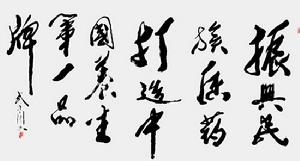 振興民
族医药
打造中
國养生
第一品
牌